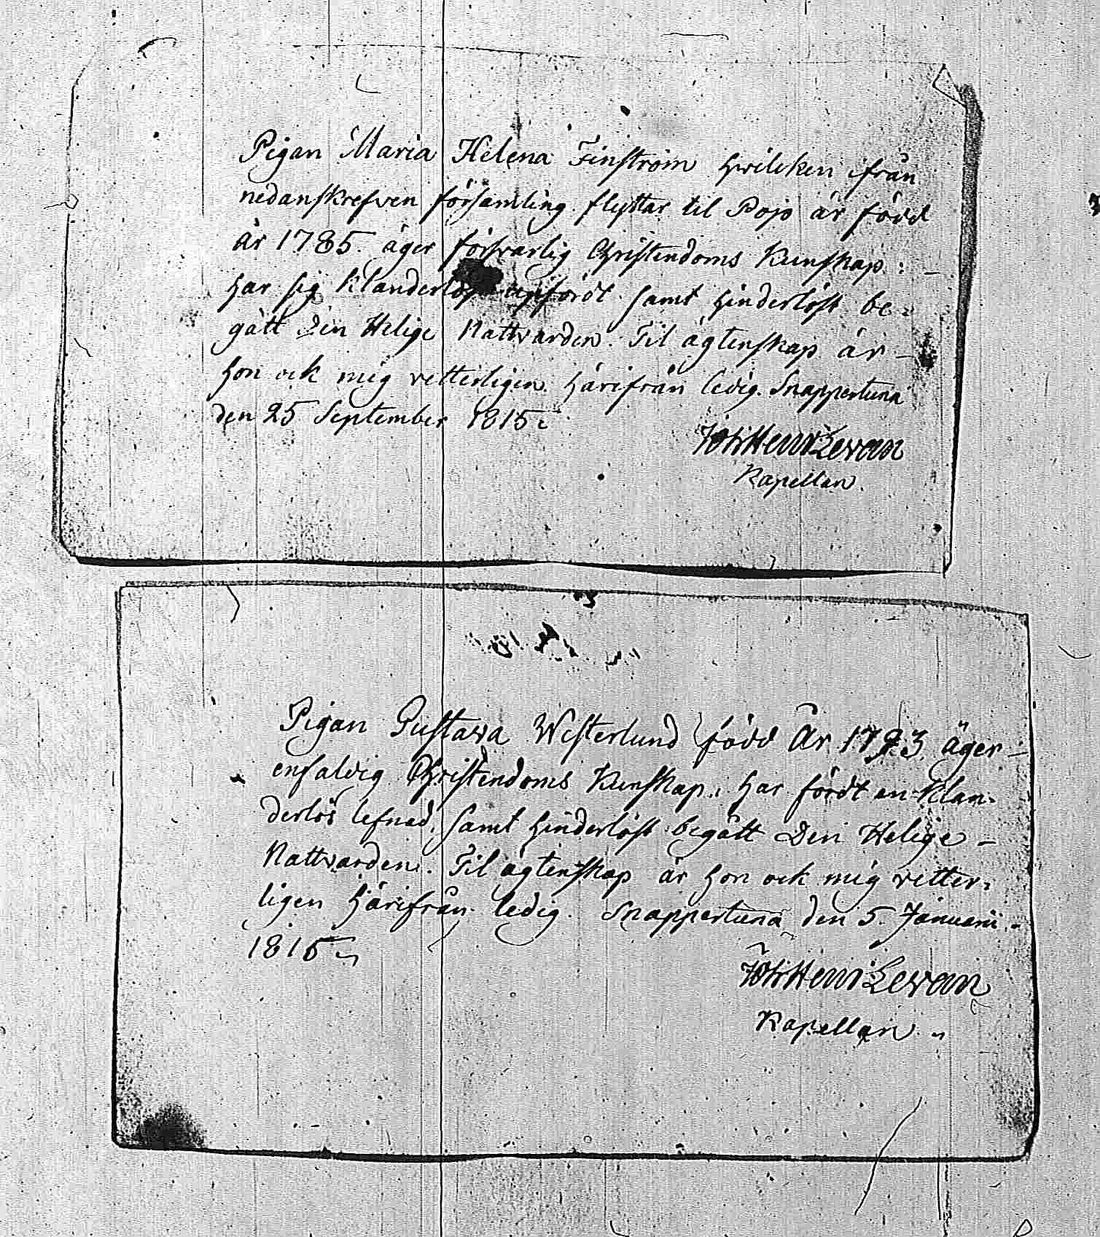 Pigan Maria Helena Finström hvilcken ifrån
nedanskrefven församling flyttar til Pojo är född
år 1785. äger försvarlig Christendoms Kunskap:
har sig klanderlöst upfördt samt hinderlöst be-
gått Den Helige Nattvarden. Til ägtenskap är
hon ock mig vetterligen härifrån ledig. Snappertuna
den 25 September 1815.
Joh Henr Levan
Kapellan.
Pigan Gustava Westerlund född År 1793 äger
enfaldig Christendoms Kunskap, har fördt en klan-
derlös lefnad, samt hinderlöst begått Den Helige
Nattvarden. Til ägtenskap är hon ock mig vetter-
ligen härifrån ledig. Snappertuna den 5 Januarii
1815
Joh Henr Levan
Kapellan.